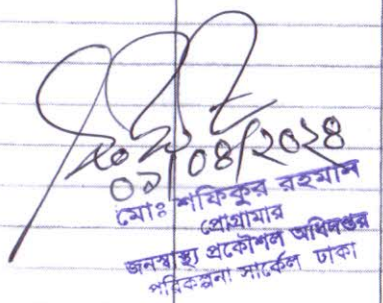 ০৯/০৪/২০২৪
মোঃ শফিকুর রহমান
প্রোগ্রামার
জনস্বাস্থ্য প্রকৌশল অধিদপ্তর
পরিকল্পনা সার্কেল ঢাকা